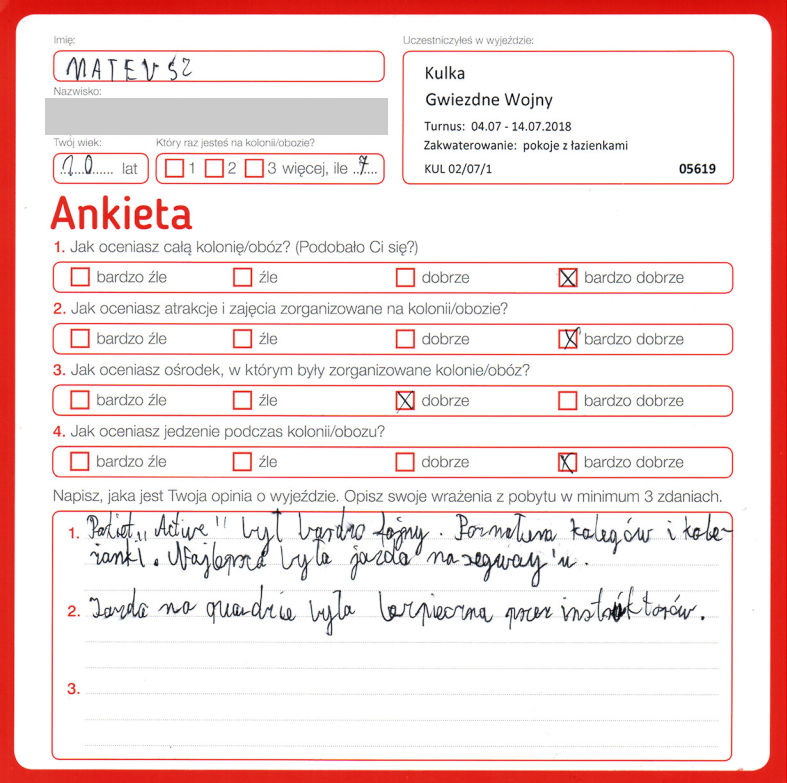 Imię:
MATEUSZ
Nazwisko:
Twój wiek:
10 lat
Który raz jesteś na kolonii/obozie?
1 2 3 więcej, ile 7
Uczestniczyłeś w wyjeździe:
Kulka
Gwiezdne Wojny
Turnus: 04.07 - 14.07.2018
Zakwaterowanie: pokoje z łazienkami
KUL 02/07/1 05619
Ankieta
1. Jak oceniasz całą kolonię/obóz? (Podobało Ci się?)
bardzo źle źle dobrze bardzo dobrze
2. Jak oceniasz atrakcje i zajęcia zorganizowane na kolonii/obozie?
bardzo źle źle dobrze bardzo dobrze
3. Jak oceniasz ośrodek, w którym były zorganizowane kolonie/obóz?
bardzo źle źle dobrze bardzo dobrze
4. Jak oceniasz jedzenie podczas kolonii/obozu?
bardzo źle źle dobrze bardzo dobrze
Napisz, jaka jest Twoja opinia o wyjeździe. Opisz swoje wrażenia z pobytu w minimum 3 zdaniach.
1. Pakiet „Active" był bardzo fajny. Poznałem kolegów i kole-
żanki. Najlepsza była jazda na segway'u.
2. Jazda na quadzie była bezpieczna przez instruktorów.
3.